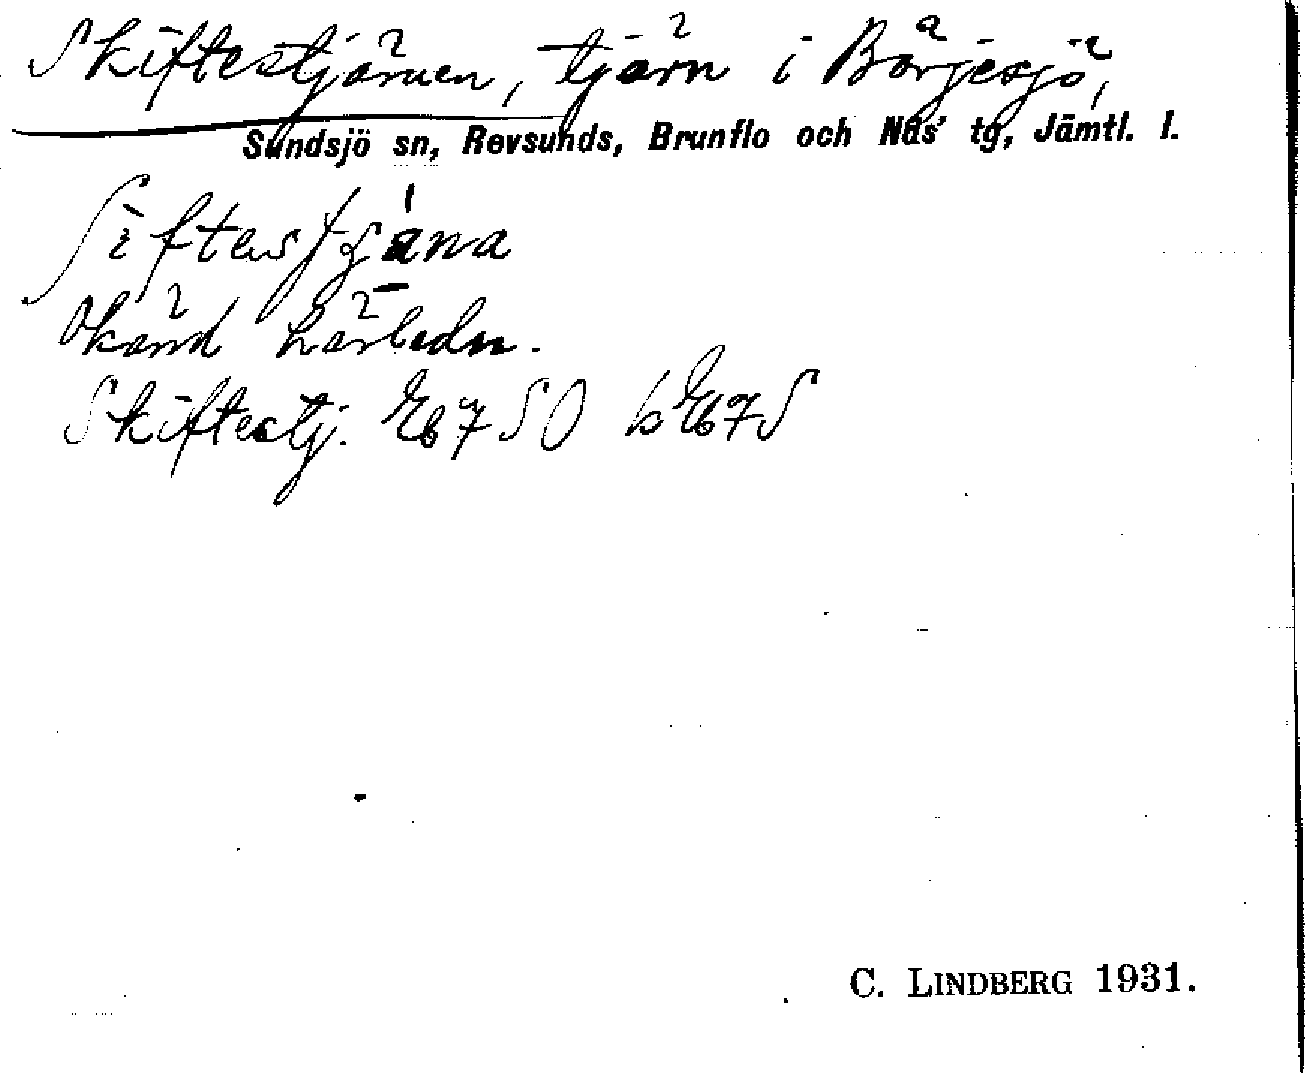 Skiftestjärnen, tjärn i Börjesjö,
Sundsjö sn, Revsunds, Brunflo och Näs' tg, Jämtl. l.
Okänd härledn.
Skiftestj. Eb 7 SO b Eb 7 S
C. LINDBERG 1931.